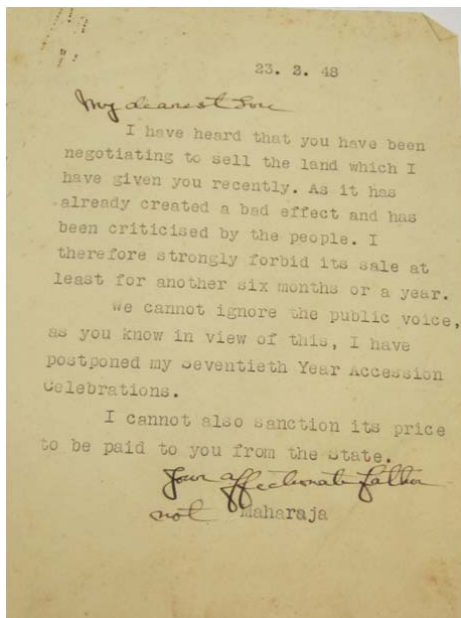 23. 2. 48
My dearest Son
I have heard that you have been
negotiating to sell the land which I
have given you recently. As it has
already created a bad effect and has
been criticised by the people. I
therefore strongly forbid its sale at
least for another six months or a year.
We cannot ignore the public voice,
as you know in view of this, I have
postponed my Seventieth Year Accession
Celebrations.
I cannot also sanction its price
to be paid to you from the State.
Your affectionate father
not Maharaja